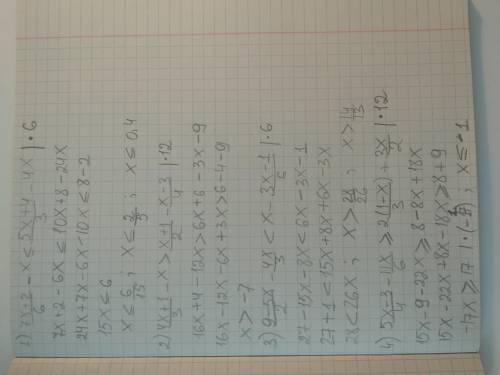 1) (7x+2)/6 - x ≤ (5x+4)/3 - 4x | · 6
7x+2-6x ≤ 10x+8-24x
24x+7x-6x-10x ≤ 8-2
15x ≤ 6
x ≤ 6/15 ; x ≤ 2/5 ; x ≤ 0,4
2) (4x+1)/3 - x > (x+1)/2 - (x-3)/4 | · 12
16x+4-12x > 6x+6-3x-9
16x-12x-6x+3x > 6-4-9
x > -7
3) (9-5x)/2 - 4x/3 < x - (3x-1)/6 | · 6
27-15x-8x < 6x-3x-1
27+1 < 15x+8x+6x-3x
28 < 26x ; x > 28/26 ; x > 14/13
4) (5x-3)/4 - 11x/6 ≥ 2(1-x)/3 + 3x/2 | · 12
15x-9-22x ≥ 8-8x+18x
15x-22x+8x-18x ≥ 8+9
-17x ≥ 17 | · (-1/17) ; x ≤ -1